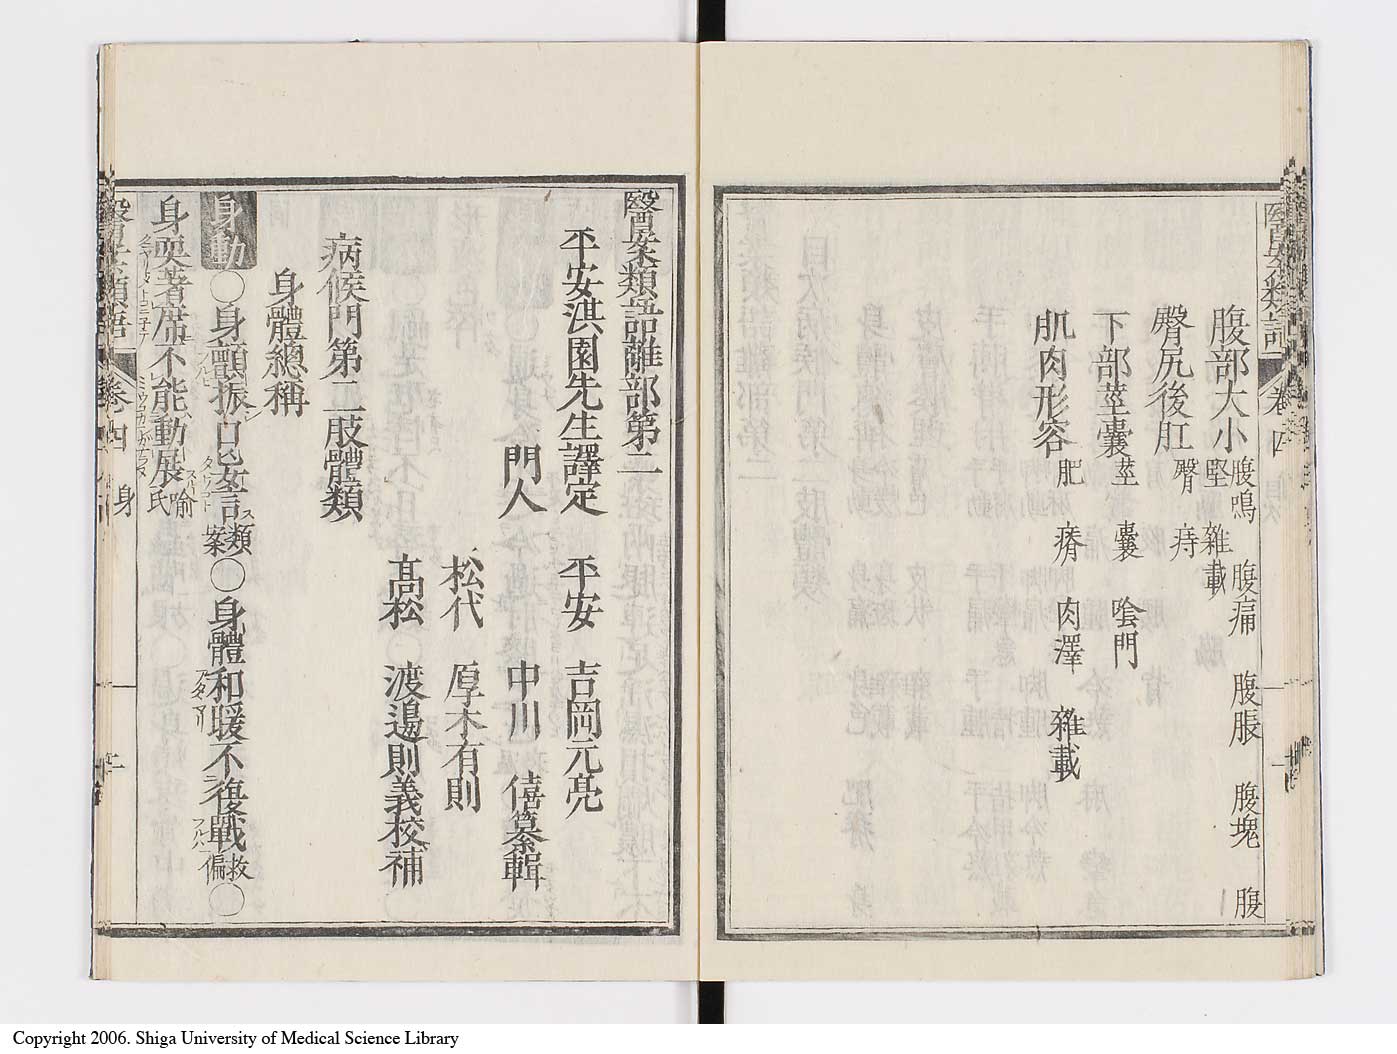 醫案類語 卷四
腹部大小 腹鳴 腹痛 腹脹 腹塊 腹
堅 雜載
臀尻後肛 臀 痔
下部莖囊 莖 囊 陰門
肌肉形容 肥 瘠 肉澤 雜載
醫案類語雜部第二
平安淇園先生譯定 平安 吉岡元亮
門人 中川 僖纂輯
松代 厚木有則
髙松 渡邉則義校補
病候門第二肢體類
身體總稱
身動 〇身顫振口妄言類案〇身體和暖不復戰救偏〇
身要著席不能動展喻氏
醫案類語 卷四 身 二
Copyright 2006. Shiga University of Medical Science Library